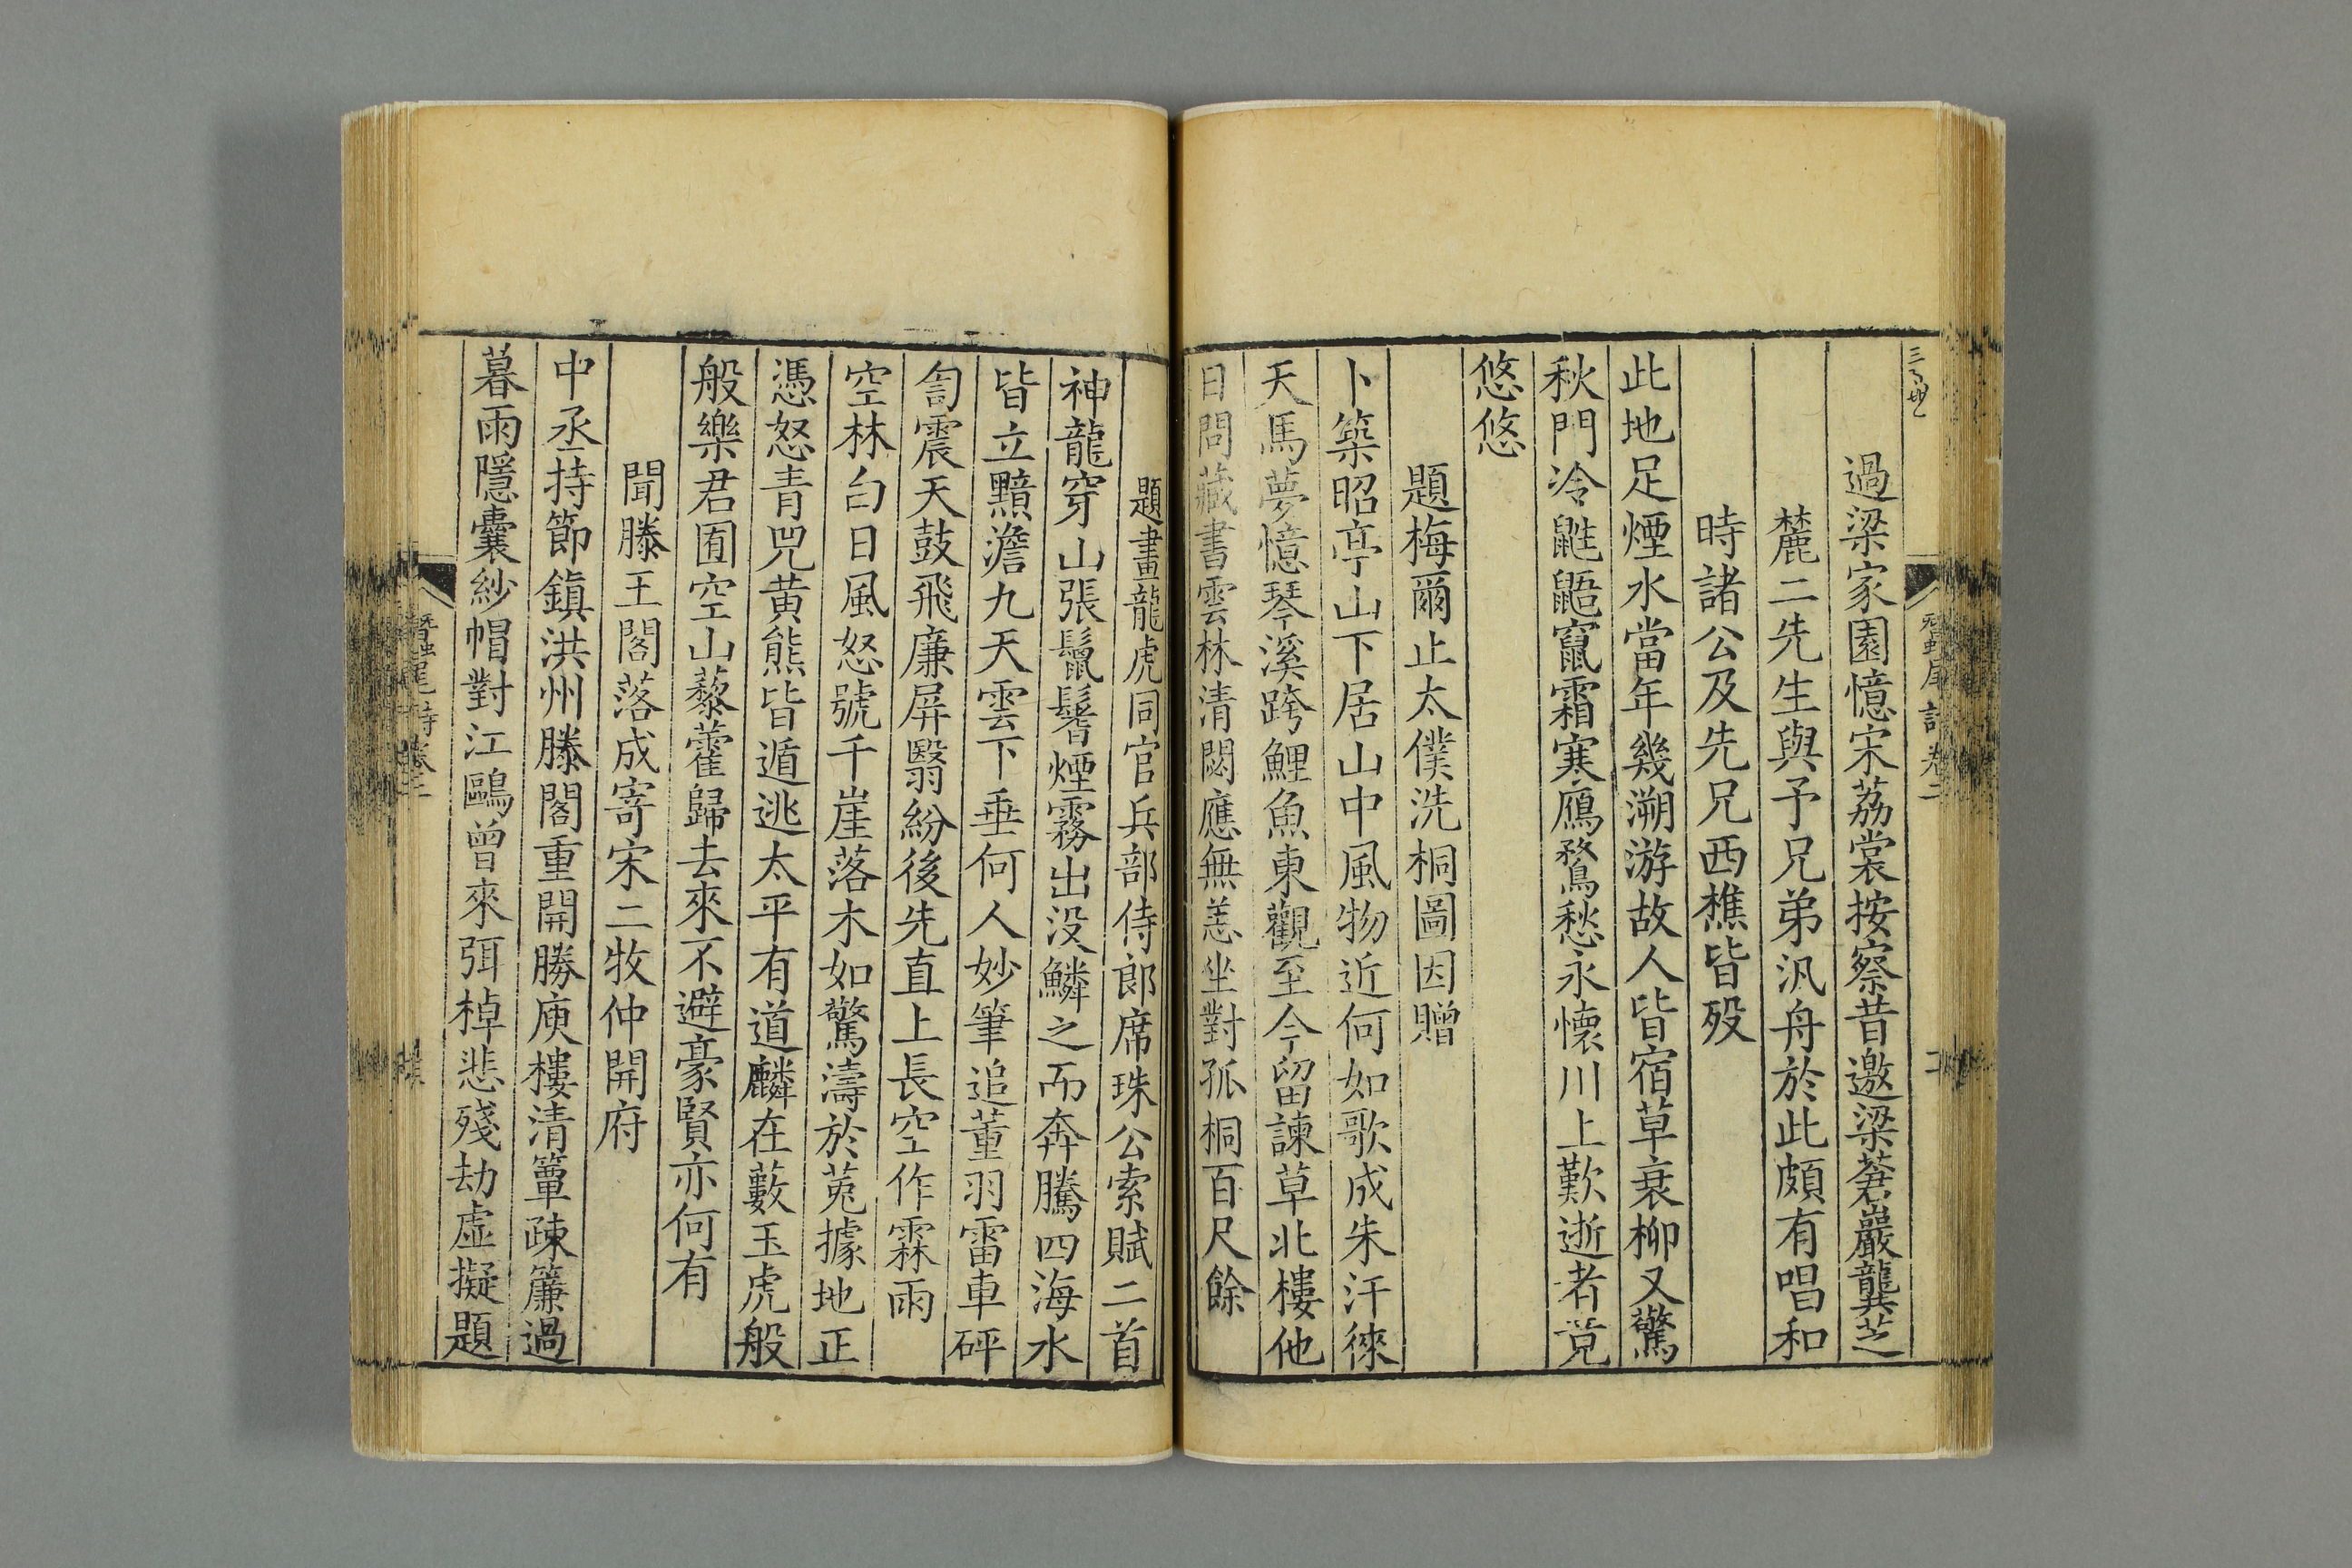 過梁家園憶宋荔裳按察昔邀梁蒼巖龔芝
麓二先生與予兄弟汎舟於此頗有唱和
時諸公及先兄西樵皆歿
此地足煙水當年幾溯游故人皆宿草衰柳又驚
秋門冷鼪鼯竄霜寒鴈鶩愁永懷川上歎逝者覓
悠悠
題梅爾止太僕洗桐圖因贈
卜築昭亭山下居山中風物近何如歌成朱汗徠
天馬夢憶琴溪跨鯉魚東觀至今留諫草北樓他
日問藏書雲林清閟應無恙坐對孤桐百尺餘
題畫龍虎同官兵部侍郎席珠公索賦二首
神龍穿山張鬣鬐煙霧出没鱗之而奔騰四海水
皆立黯澹九天雲下垂何人妙筆追董羽雷車砰
訇震天鼓飛廉屏翳紛後先直上長空作霖雨
空林白日風怒號千崖落木如驚濤於菟據地正
憑怒青兕黄熊皆遁逃太平有道麟在藪玉虎般
般樂君囿空山藜藿歸去來不避豪賢亦何有
聞滕王閣落成寄宋二牧仲開府
中丞持節鎮洪州滕閣重開勝庾樓清簟疎簾過
暮雨隱囊紗帽對江鷗曾來弭棹悲殘劫虛擬題
蠶尾詩卷二